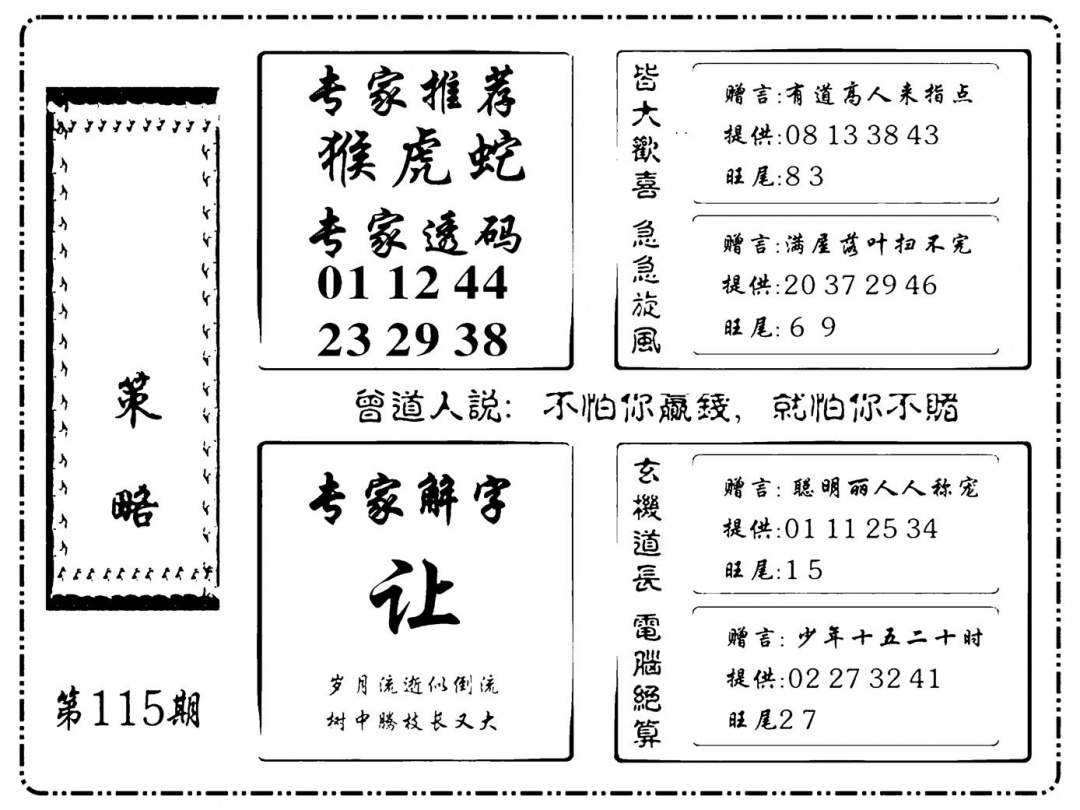 策略
第115期
专家推荐
猴虎蛇
专家透码
01 12 44
23 29 38
皆大歡喜
赠言:有道高人来指点
提供:08 13 38 43
旺尾:8 3
急急旋風
赠言:满屋落叶扫不完
提供:20 37 29 46
旺尾:6 9
曾道人説: 不怕你贏錢, 就怕你不賭
专家解字
让
岁月流逝似倒流
树中腾枝长又大
玄機道長
赠言: 聪明丽人人称宠
提供:01 11 25 34
旺尾:1 5
電腦絕算
赠言: 少年十五二十时
提供:02 27 32 41
旺尾2 7